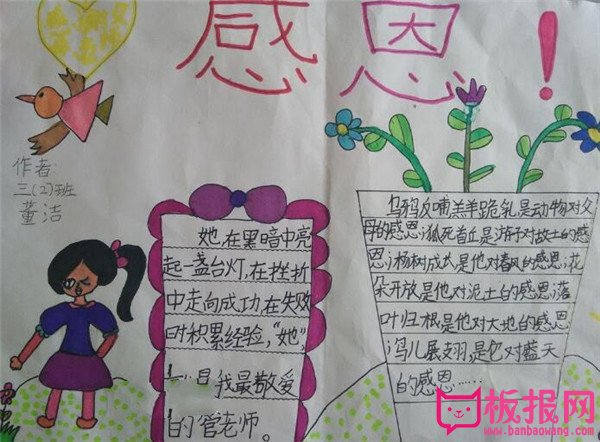 感恩！
作者
三(2)班
董洁
她,在黑暗中亮
起一盏台灯,在挫折
中走向成功,在失败
时积累经验,“她”,
我最敬爱
的管老师。
乌鸦反哺羔羊跪乳是动物对父
母的感恩;狐死首丘是游子对故土的感
恩;杨树成弋是他对春风的感恩;花
朵开放是他对泥土的感恩;落
叶归根是他对大地的感恩
鸟儿展翅,是它对蓝天
的感恩……
板报网
www.banbaowang.com